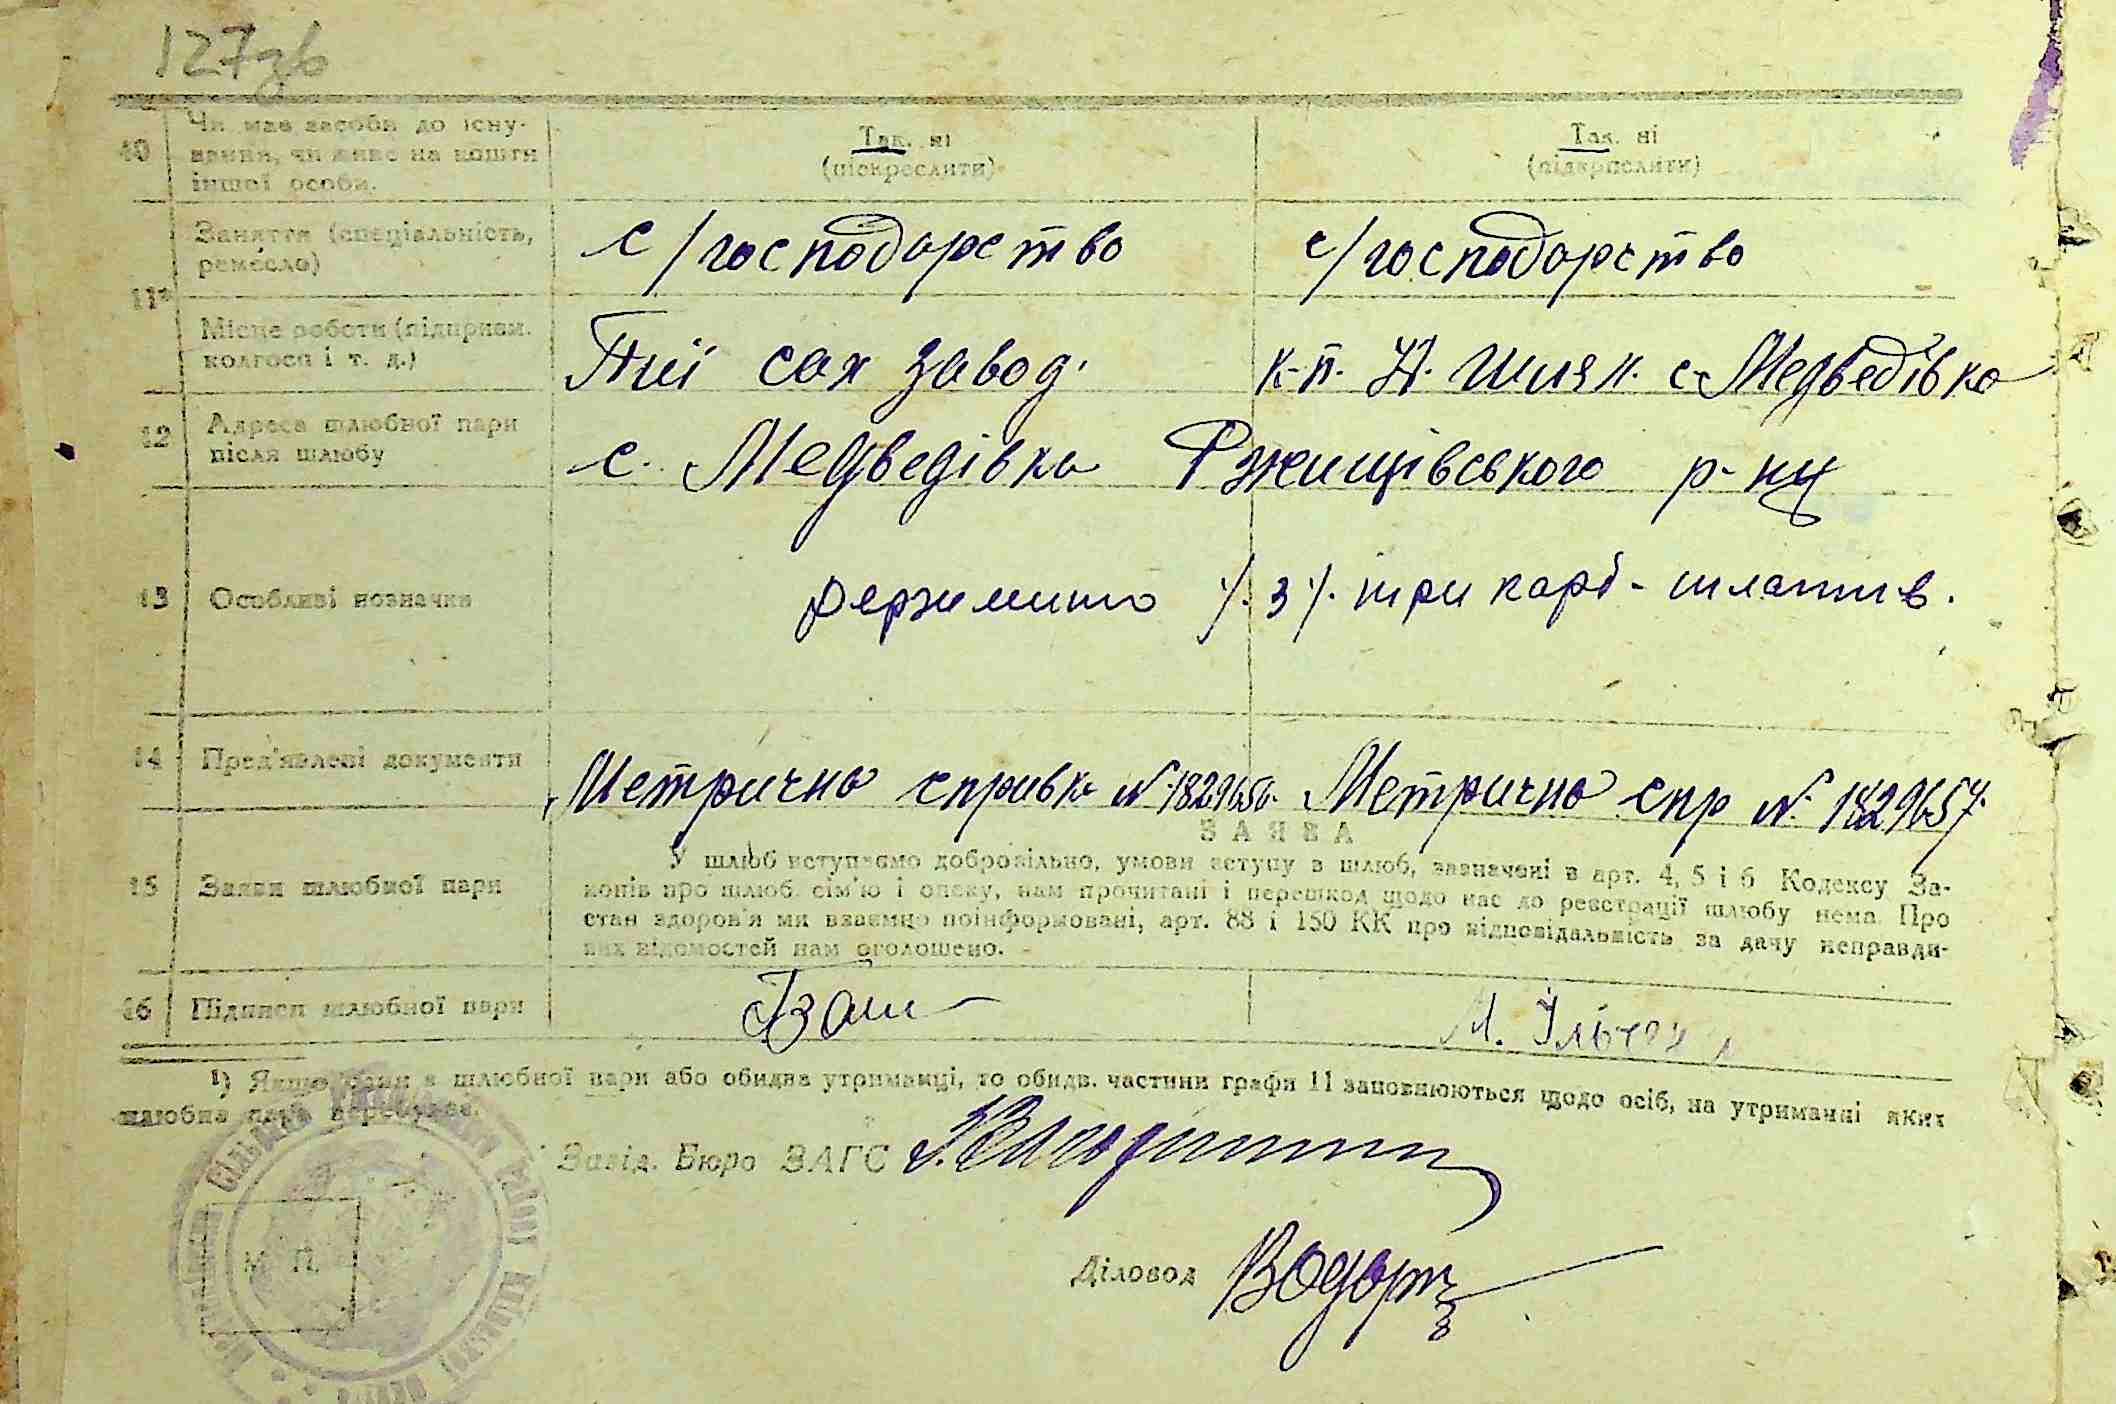 127зв
10 Чи має засоби до існу-
вання, чи живе на кошти
іншої особи.
Так. ні
(підкреслити)
Так. ні
(підкреслити)
11¹) Заняття (спеціальність,
ремесло)
с/господарство
с/господарство
Місце роботи (підприєм.
колгосп і т. д.)
сах завод.
к-п. Н. Шлях. с-Медведівка
12 Адреса шлюбної пари
після шлюбу
с. Медведівка Ржищівського р-ну
13 Особливі позначки
три карб-
14 Пред'явлені документи
Метрична справка N. Метрична спр N. 1829657.
15 Заяви шлюбної пари
ЗАЯВА
У шлюб вступаємо добровільно, умови вступу в шлюб, зазначені в арт. 4, 5 і 6 Кодексу За-
конів про шлюб, сім'ю і опеку, нам прочитані і перешкод щодо нас до реєстрації шлюбу нема. Про
стан здоров'я ми взаємно поінформовані, арт. 88 і 150 КК про відповідальність за дачу неправди-
вих відомостей нам оголошено.
16 Підписи шлюбної пари
¹) Якщо один з шлюбної пари або обидва утриманці, то обидв. частини графи 11 заповнюються щодо осіб, на утриманні яких
шлюбна пара перебуває.
Завід. Бюро ЗАГС
Діловод
М. П.